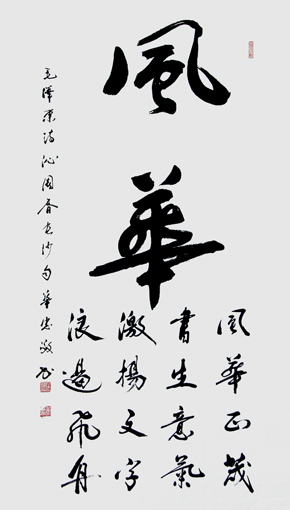 風華
風華正茂
書生意氣
激揚文字
浪遏飛舟
毛澤東詩沁園春長沙句華忠敏書